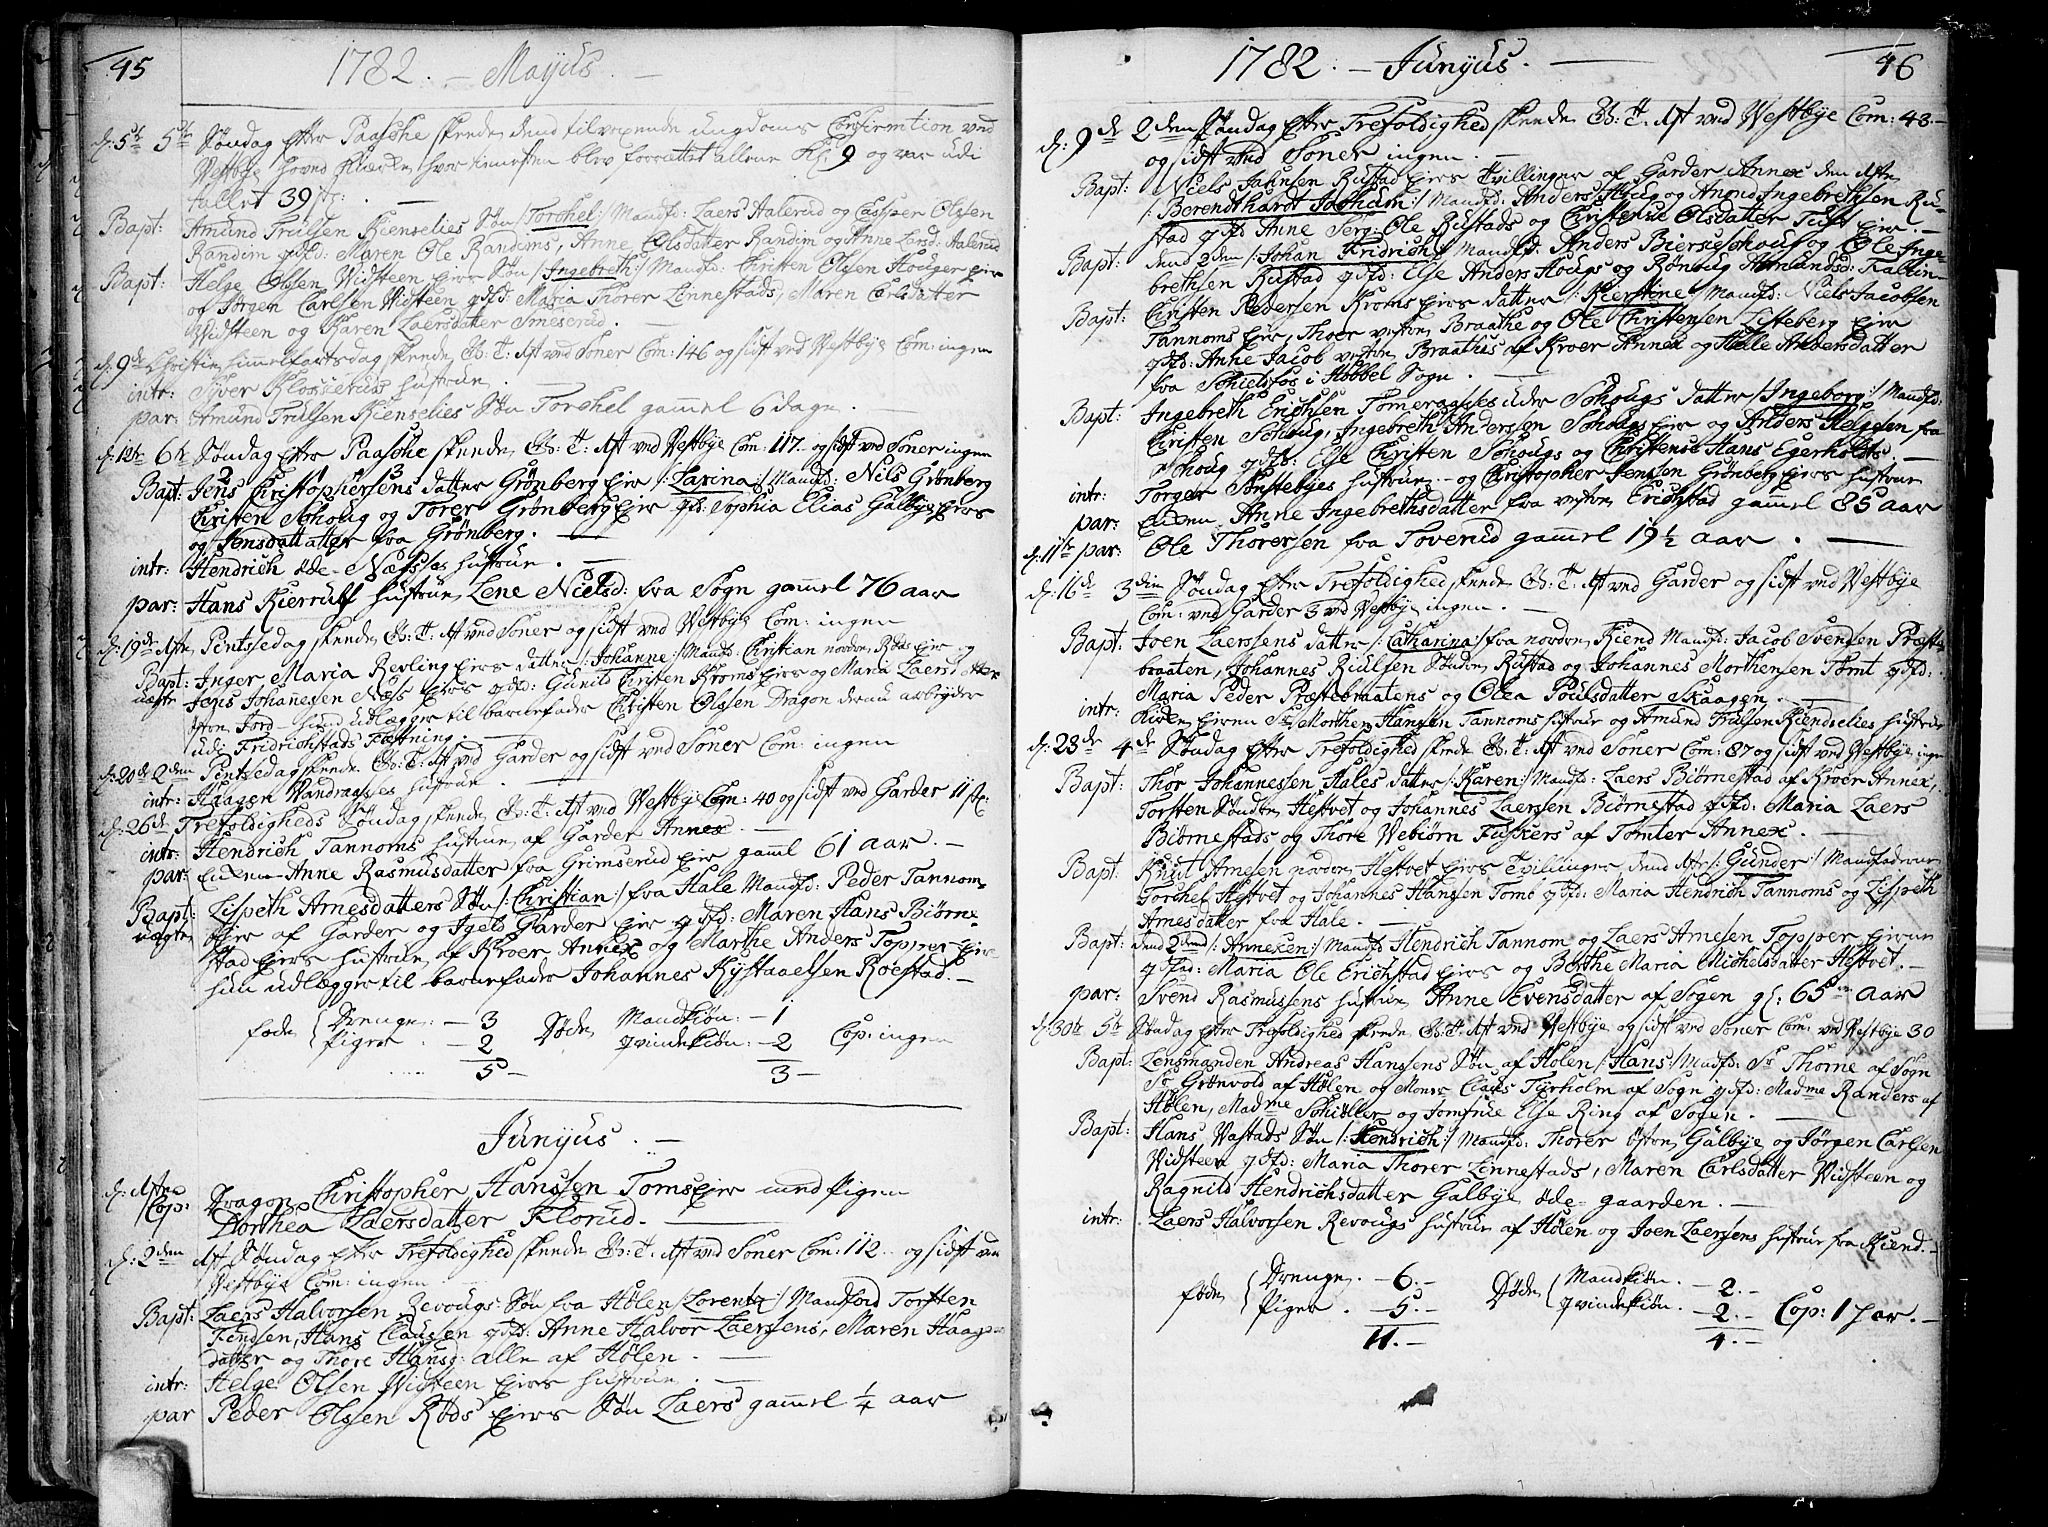 45
1782. - Mayus. -
d: 5te 5te Søndag efter Paaske skeede dend tilvoxende ungdoms Confirmtion ved
Westbye hoved Kierke, hvor tienesten blev forrættet allene Kl: 9 og var udi
tallet 39 st:
Bapt: Amund Trulsen Kienselies Søn /:Torchel:/ Mandf: Laers Aalerud og Casper Olssen
Randim qdf: Maren Ole Randims, Anne Olsdatter Randim og Anne Larsd: Aalerud
Bapt: Helge Olssen Widsteen Eiers Søn /:Ingebreth:/ Mandf: Christen Olssen Houger Eier
og Jørgen Carlsen Widsteen qdfd: Maria Thorer Linnestads, Maren Carlsdatter
Widsteen og Karen Laersdatter Smeserud.
d: 9de Christi himmelfartsdag skeede G: T: Aft ved Soner Com: 146 og sidst ved Westbye Com: ingen
intr: Syver Kloosseruds hustrue.
par: Amund Trulsen Kienselies Søn Torchel gammel 6 dage.
d: 12te 6te Søndag efter Paaske skeede G: T: Aft ved Westbye Com: 117 og sidst ved Soner ingen
Bapt: Jens Christophersens datter Grønberg Eier /:Larina:/ Mandf: Niels Grønberg
Christen Schoug og Torer Grønberg Eier qdf: Sophia Elias Galbye Eiers
og Jensdattatter fra Grønberg.
intr: Hendrich øde-Næsses hustrue.
par: Hans Kierrulf hustrue, Lene Nielsd: fra Sogn gammel 76 aar
d: 19de 1ste Pentsedag skeede G: T: Aft ved Soner og sidst ved Westbye Com: ingen
Bapt: Inger Maria Revling Eiers datter /:Johanne:/ Mandf: Christian norden Røds Eier og
uægte Jens Johanesen Næss Eiers qdfd: Gunild Christen Kroms Eiers og Maria Laers
østen Ford hund udlægger til barnefader Christen Olssen Dragon derau arbejder
udi Fridrichstads Fæstning.
d: 20de 2den Pentsedag skeede G: T: Aft ved Garder og sidst ved Soner Com: ingen
intr: Haagen Wandragsses hustrue
d: 26de Trefoldigheds Søndag skeede G: T: Aft ved Westbye Com: 40 og sidst ved Garder 11 st:
intr: Hendrich Tannoms hustrue af Garder Annex. -
par: Enken Anne Rasmusdatter fra Grimserud Eier gaml 61 aar. -
Bapt: Lispeth Arnesdatters Søn /:Christian:/ fra Hale Mandf: Peder Tannom-
uægte Eier af Garder og Igeld Garder Eier qdfd: Maren Hans Biørne-
stad Eiers hustrue af Kroer Annex og Marthe Anders Topper Eier
hun udlægger til barnefader Johannes Kystaaelsen Roestad -
føde { Drenge: - 3 Døde Mandkiøn: - 1
Piger - 2 qvindekiøn: - 2 Cop: ingen
5 - 3 -
Junyus. -
d: 1ste
Cop: Dragon Christopher Hanssen Toms Eier med Pigen
Dorthea Laersdatter Florud.
d: 2den 1st Søndag efter Trefoldighed skeede G: T: Aft ved Soner Com: 112 og sidst ved
Westbye Com: ingen
Bapt: Laers Halvorsen Revougs Søn fra Hølen /:Lorentz:/ Mandford Torsten
Findsen, Hans Claussen qdfd: Anne Halvor Laerssens, Maren Haag
datter og Thore Hansd: alle af Hølen.
intr: Helge Olsen Widsteen Eiers hustrue.
par Peder Olssen Røds Eiers Søn Laers gammel 1/4 aar
1782. - Junyus. -
46
d: 9de 2den Søndag efter Trefoldighed skeede G: T: Aft ved Westbye Com: 48. -
og sidst ved Soner ingen.
Bapt: Niels Jahnsen Rustad Eiers tvillinger af Garder Annex den 1ste
/:Berendthardt Jochum:/ Mandfd: Anders Houg og Amund Ingebrethsen Ru-
stad qdfd Anne Serg: Ole Rustads og Christense Olsdatter Tuft Eier. -
Bapt: dend 2den /:Johan Fridrich:/ Mandfd: Anders Bierseschoug og Ole Inge-
brethsen Rustad qdfd: Else Anders Hougs og Rønnug Amundsd: Faltin
Bapt: Christen Pedersen Kroms Eiers datter /:Kierstine:/ Mandfd: Niels Jacobsen
Tannoms Eier, Thoer vesten Braathe og Ole Christensen Listeberg Eier
qdfd: Anne Jacob vesten Braathes af Kroer Annex og Hale Andersdatter
fra Schielsfos i Hobbel Sogn. -
Bapt: Ingebreth Erichsen Tomeragsses under Schougs datter /:Ingeborg:/ Mandfd:
Christen Schoug, Ingebreth Anderssen Schougs Eier og Anders Helgesen fra
Schoug qdfd: Else Christen Schougs og Christense Hans Egerholdts. -
intr: Torger Sonstebyes hustrue - og Christopher Jenssen Grønberg Eiers hustrue
par: Enken Anne Ingebrethsdatter fra vesten Erichstad gammel 85 aar
d: 11te par: Ole Thorersen fra Toverud gammel 19 1/2 aar. -
d: 16de 3die Søndag efter Trefoldighed skeede G: T: Aft ved Garder og sidst ved Westbye
Com: ved Garder 3 ved Westbye ingen. -
Bapt: Joen Laerssens datter /:Catharina:/ fra norden Kiend Mandfd: Jacob Svendsen Præste-
braaten, Johannes Riulsen Sønden Rustad og Johannes Morthensen Tomt qdfd:
Maria Peder Præstebraatens og Olea Poulsdatter Skaagen.
intr: Kirken Eieren Sr Morthen Hansen Tannoms hustrue og Amund Trulsen Kiendselies hustrue
d: 23de 4de Søndag efter Trefoldighed skeede G: T: Aft ved Soner Com: 87 og sidst ved Westbye ingen
Bapt: Thor Johannessen Hales datter /:Karen:/ Mandfd: Laers Biørnestad af Kroer Annex,
Torsten Sønden Hestvet og Johannes Laerssen Biørnestad qdfd: Maria Laers
Biørnestads og Thore Webiørn Fuskers af Tomter Annex. -
Bapt: Knut Arnesen norden Hestvet Eiers Tvillinger dend 1ste /:Gunder:/ Mandfaderne
Torchel Hestvet og Johannes Hansen Tomb qdfd: Maria Hendrich Tannoms og Lispeth
Arnesdatter fra Hale. -
Bapt: dend 2den /:Anneken:/ Mandfd Hendrich Tannom og Laers Arnesen Topper Eieren
qdfd: Maria Ole Erichstad Eiers og Berthe Maria Michelsdatter Hestvet. -
par: Svend Rasmussens hustrue Anne Evensdatter af Sogen gl: 65 aar
d: 30te 5te Søndag efter Trefoldighed skeede G: T: Aft ved Westbye og sidst ved Soner Com: ved Westbye 30
Bapt: Lensmanden Andreas Hanssens Søn af Hølen /:Hans:/ Mandfd: Sr Thorne af Sogn
Sr Grønvold af Hølen og Monsr Claus Tyrholm af Sogn qdfd: Madme Randers af
Hølen, Madme Schiøller og Jomfrue Else Ring af Sogen. -
Bapt: Hans Wastads Søn /:Hendrich:/ Mandfd: Thorer østen Galbye og Jørgen Carlsen
Widsteen qdfd: Maria Thorer Linnestads, Maren Carlsdatter Widsteen og
Ragnild Hendrichsdatter Galbye øde-gaarden. -
intr: Laers Halvorsen Revougs hustrue af Hølen og Joen Laerssens hustrue fra Kiend. -
føde { Drenge. - 6. - Døde { Mandkiøn. - 2. -
Piger. - 5. - qvindekiøn. - 2. - Cop: 1 par. -
11. - 4. -